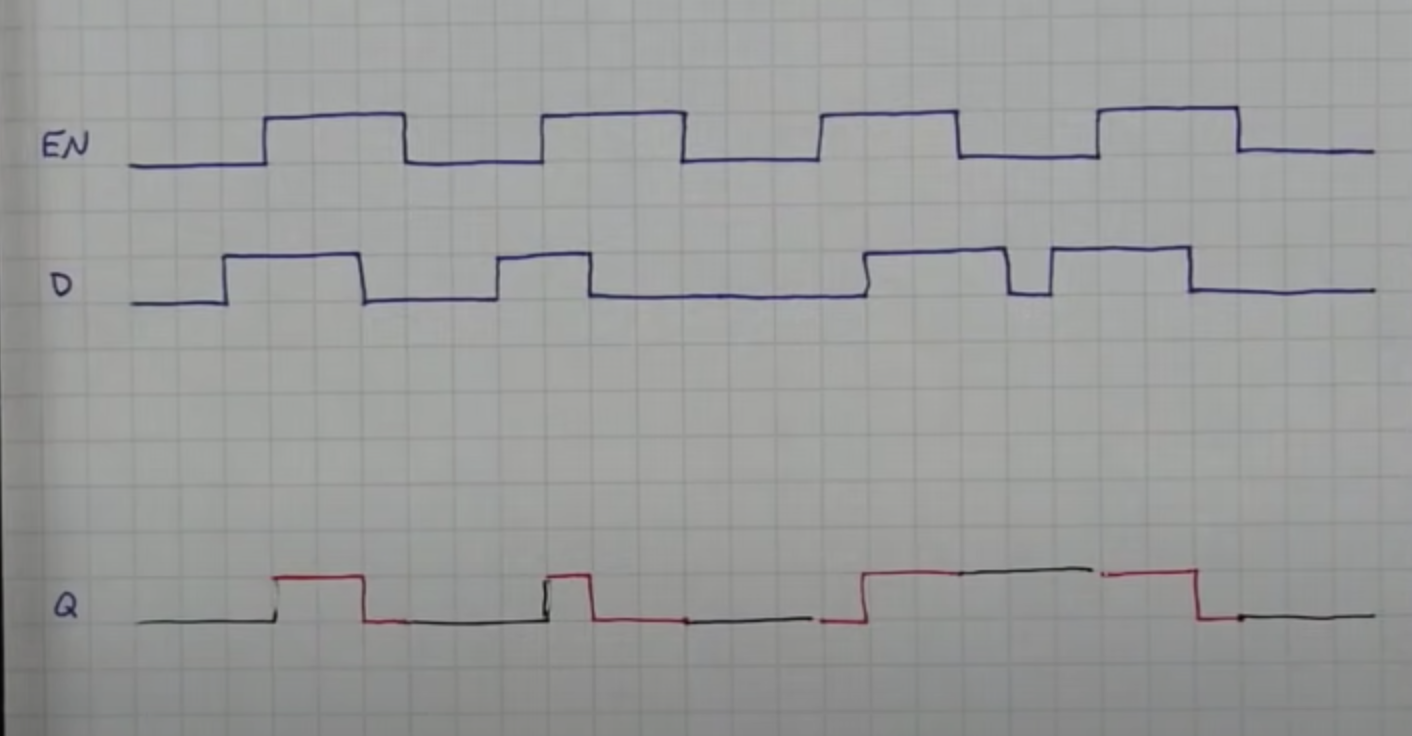 EN
D
Q